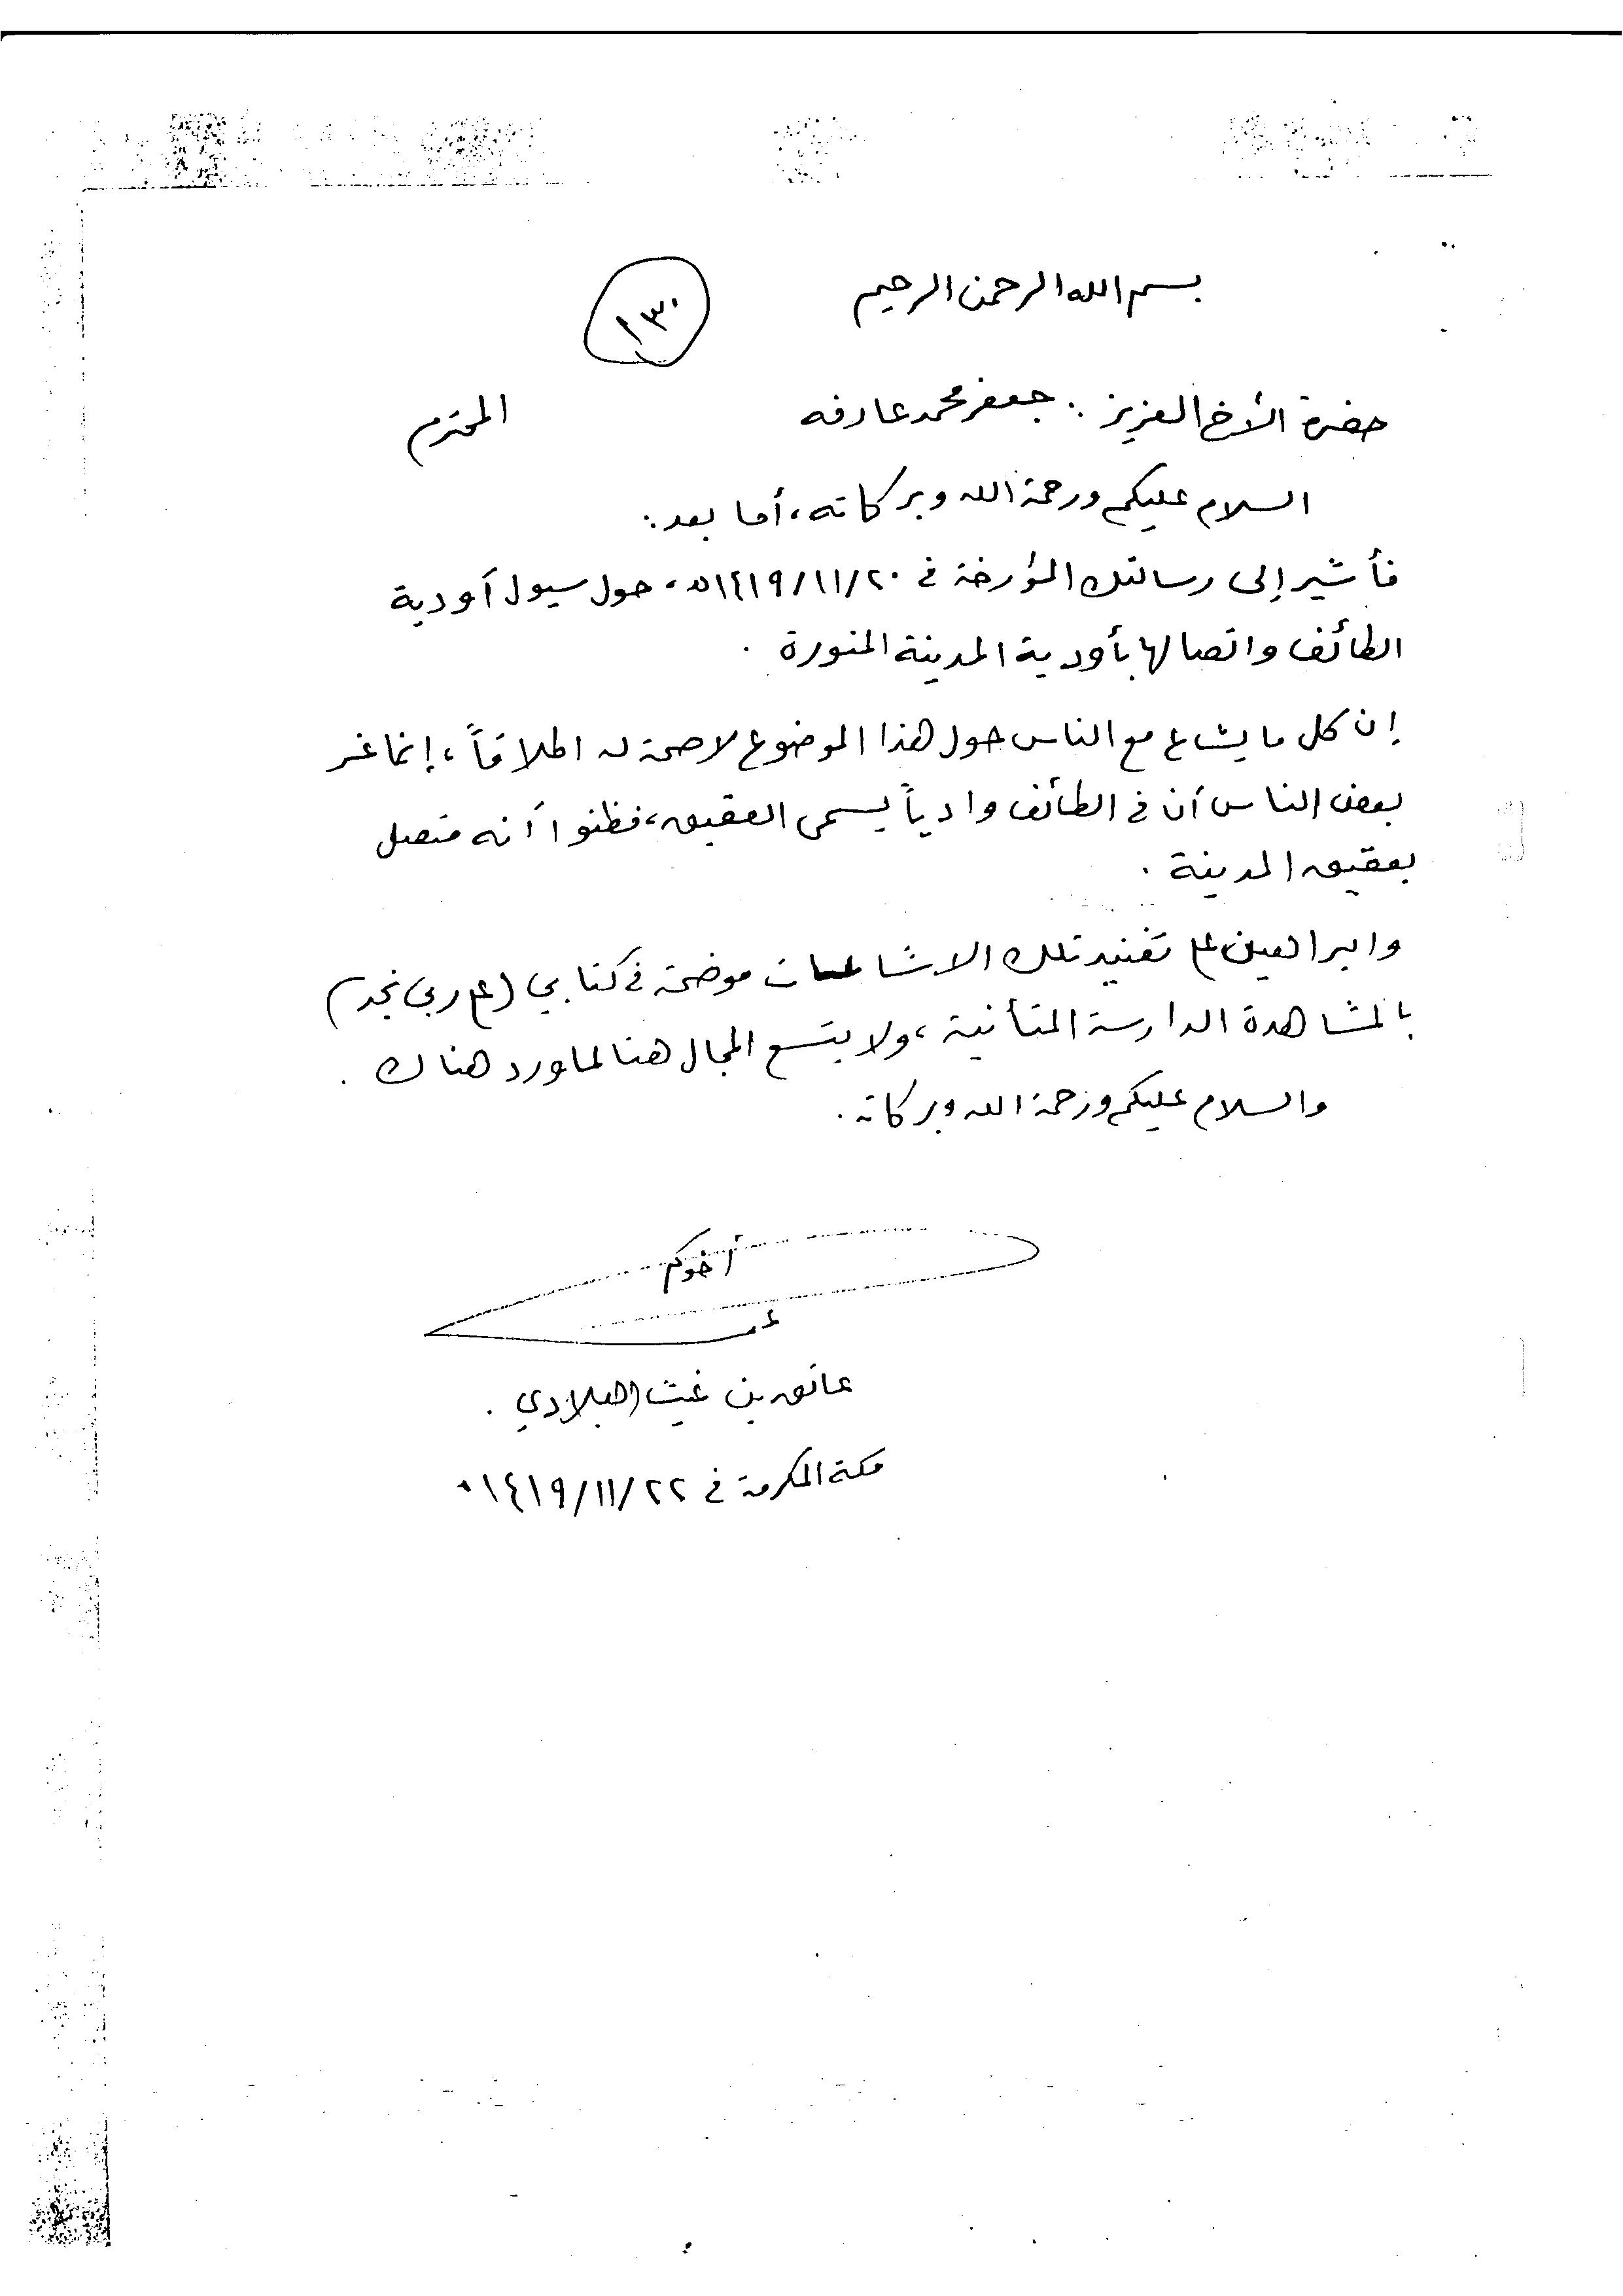 بسم الله الرحمن الرحيم
١٣٠
حضرة الأخ العزيز .. جعفر محمد عارفه المحترم
السلام عليكم ورحمة الله وبركاته، أما بعد:
فأشير إلى رسالتك المؤرخة في ١٤١٩/١١/٢٠هـ. حول سيول أودية
الطائف واتصالها بأودية المدينة المنورة .
إن كل ما يشاع مع الناس حول هذا الموضوع لا صحة له اطلاقاً، إنما غر
بعض الناس أن في الطائف وادياً يسمى العقيق، فظنوا أنه متصل
بعقيق المدينة .
والبراهين على تفنيد تلك الاشاعات موضحة في كتابي (على ربى نجد)
بالمشاهدة الدارسة المتأنية، ولا يتسع المجال هنا لما ورد هناك .
والسلام عليكم ورحمة الله وبركاته.
أخوكم
عاتق بن غيث البلادي .
مكة المكرمة في ١٤١٩/١١/٢٢ هـ